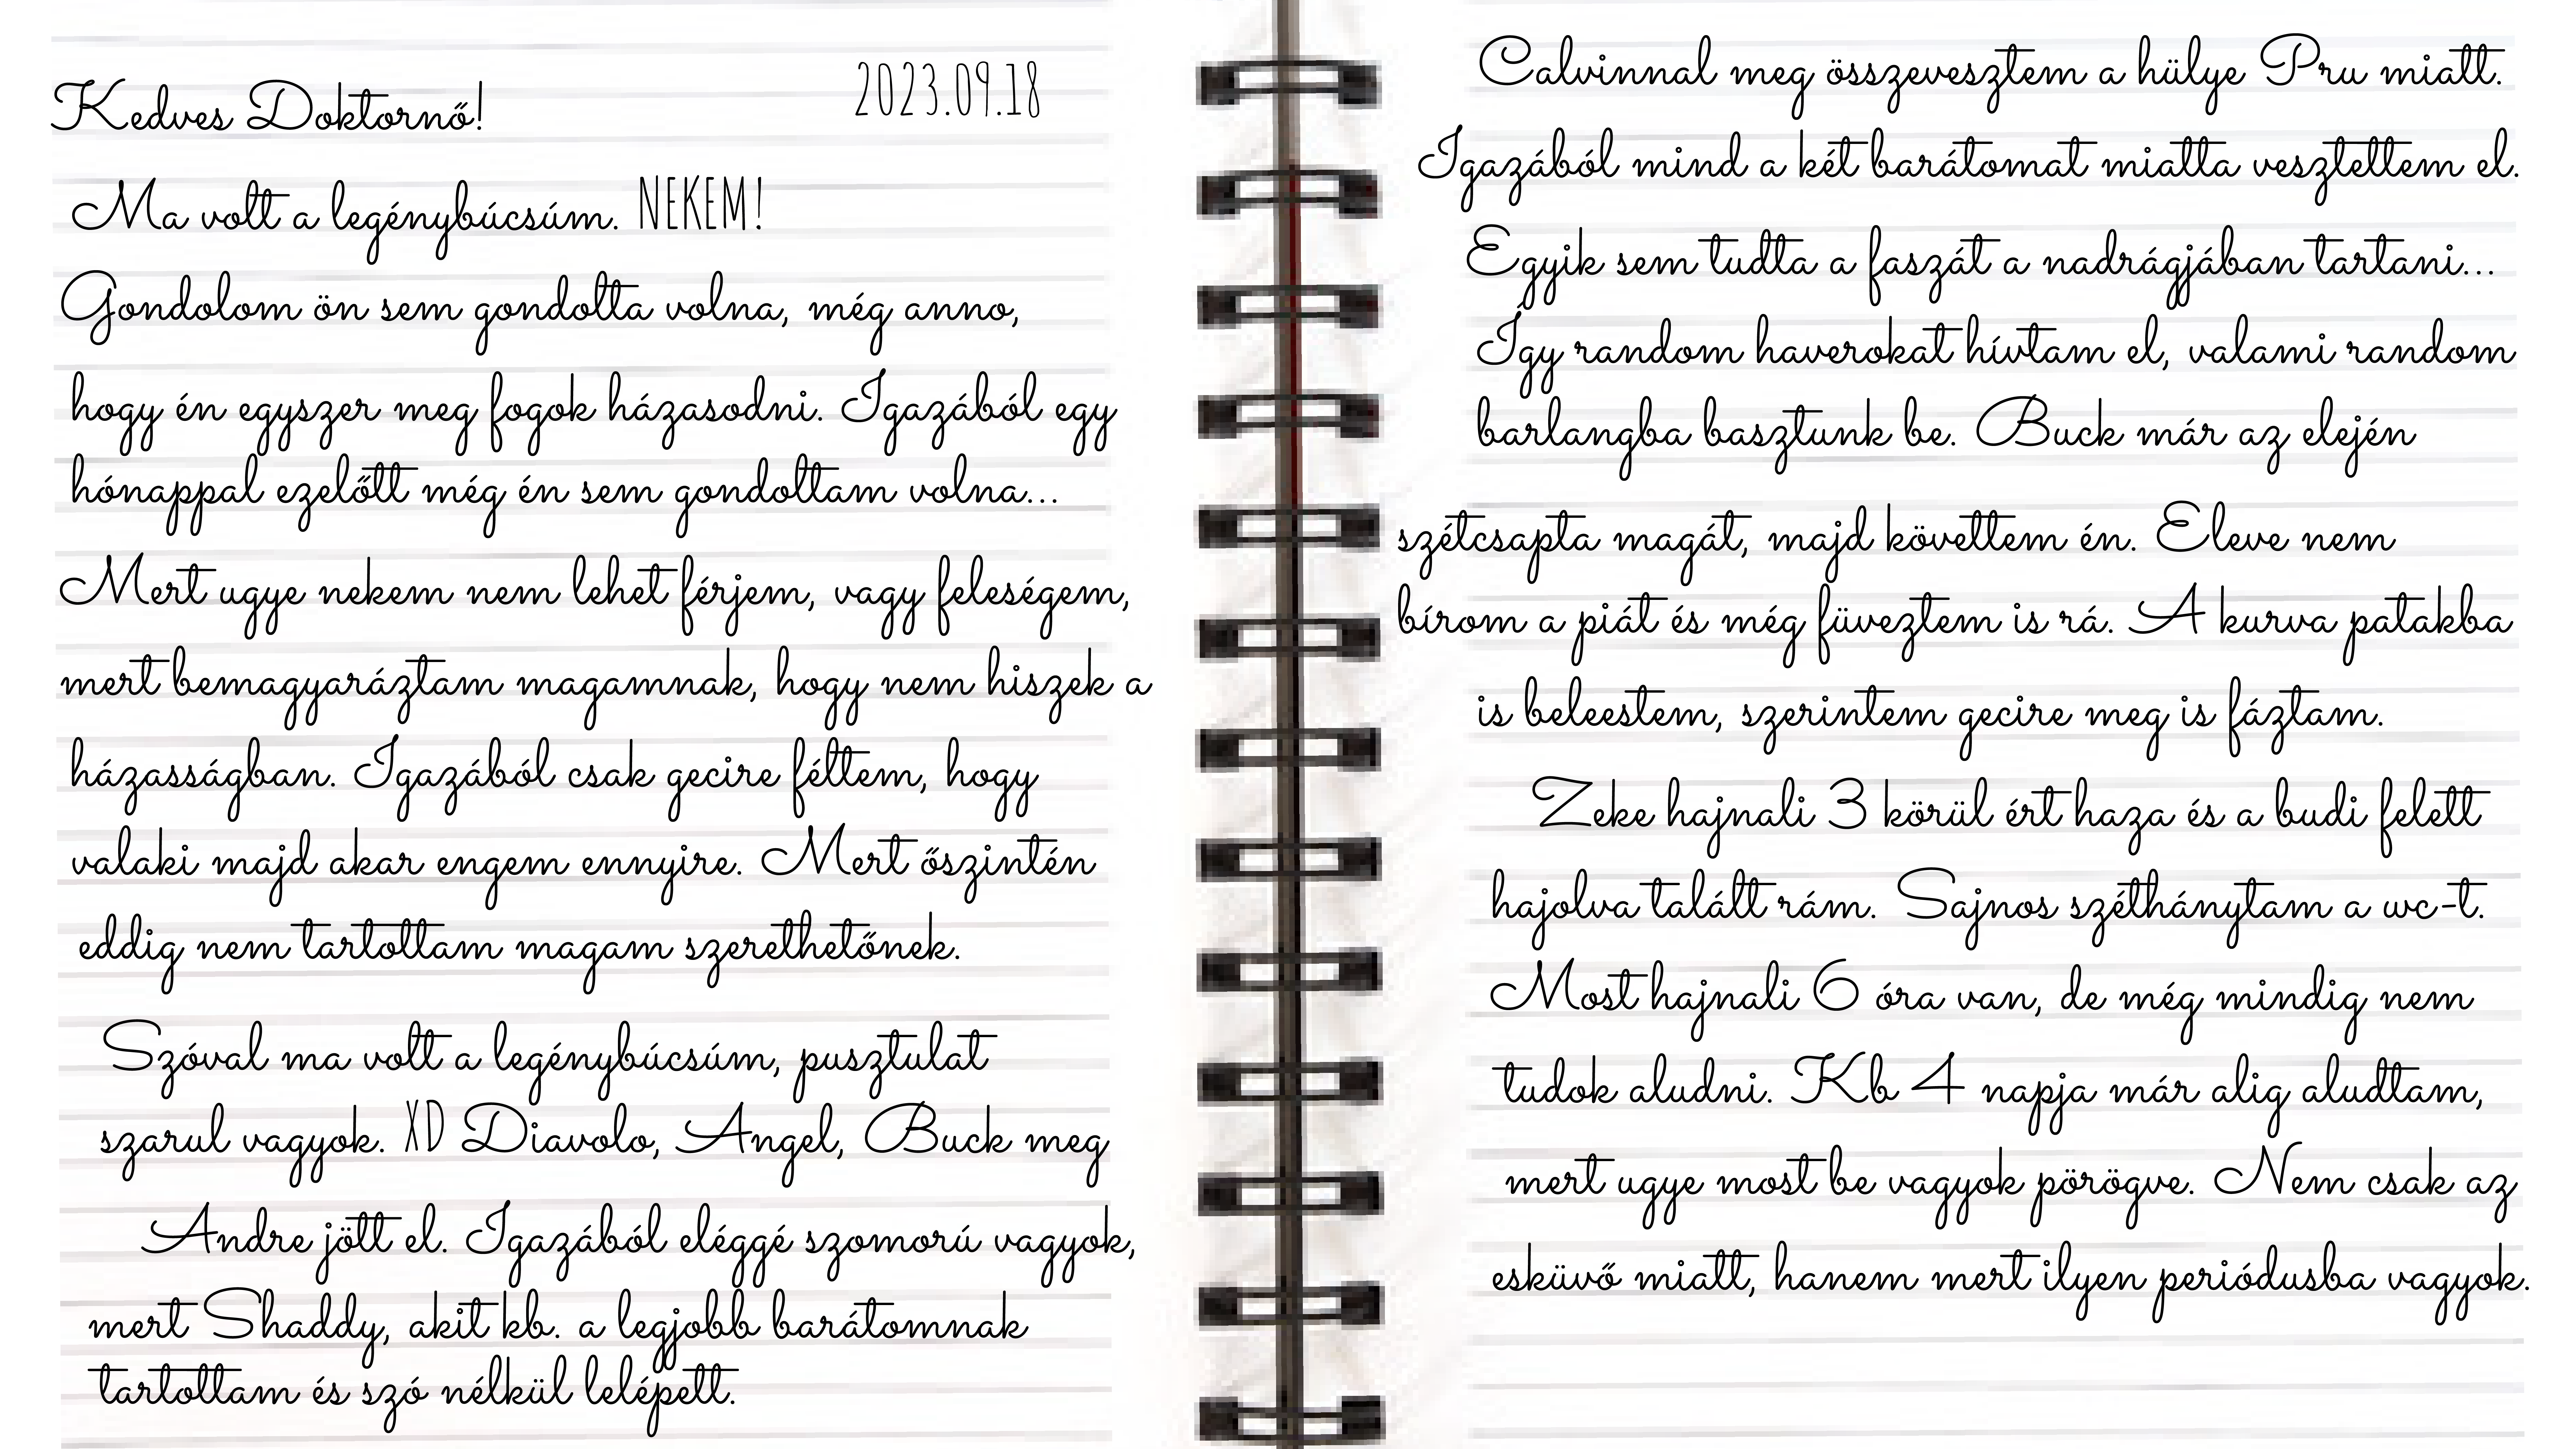 2023.09.18
Kedves Doktornő!
Ma volt a legénybúcsúm. NEKEM!
Gondolom ön sem gondolta volna, még anno,
hogy én egyszer meg fogok házasodni. Igazából egy
hónappal ezelőtt még én sem gondoltam volna...
Mert ugye nekem nem lehet férjem, vagy feleségem,
mert bemagyaráztam magamnak, hogy nem hiszek a
házasságban. Igazából csak gecire féltem, hogy
valaki majd akar engem ennyire. Mert őszintén
eddig nem tartottam magam szerethetőnek.
Szóval ma volt a legénybúcsúm, pusztulat
szarul vagyok. XD Diavolo, Angel, Buck meg
Andre jött el. Igazából eléggé szomorú vagyok,
mert Shaddy, akit kb. a legjobb barátomnak
tartottam és szó nélkül lelépett.
Calvinnal meg összevesztem a hülye Pru miatt.
Igazából mind a két barátomat miatta vesztettem el.
Egyik sem tudta a faszát a nadrágjában tartani...
Így random haverokat hívtam el, valami random
barlangba basztunk be. Buck már az elején
szétcsapta magát, majd követtem én. Eleve nem
bírom a piát és még füveztem is rá. A kurva patakba
is beleestem, szerintem gecire meg is fáztam.
Zeke hajnali 3 körül ért haza és a budi felett
hajolva talált rám. Sajnos széthánytam a wc-t.
Most hajnali 6 óra van, de még mindig nem
tudok aludni. Kb 4 napja már alig aludtam,
mert ugye most be vagyok pörögve. Nem csak az
esküvő miatt, hanem mert ilyen periódusba vagyok.